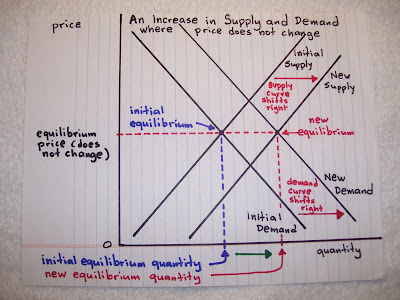 price
An Increase in Supply and Demand
where price does not change
Initial
Supply
New
Supply
supply
curve
shifts
right
initial
equilibrium
new
equilibrium
equilibrium
price (does
not change)
New
Demand
demand
curve
shifts
right
Initial
Demand
0
quantity
initial equilibrium quantity
new equilibrium quantity